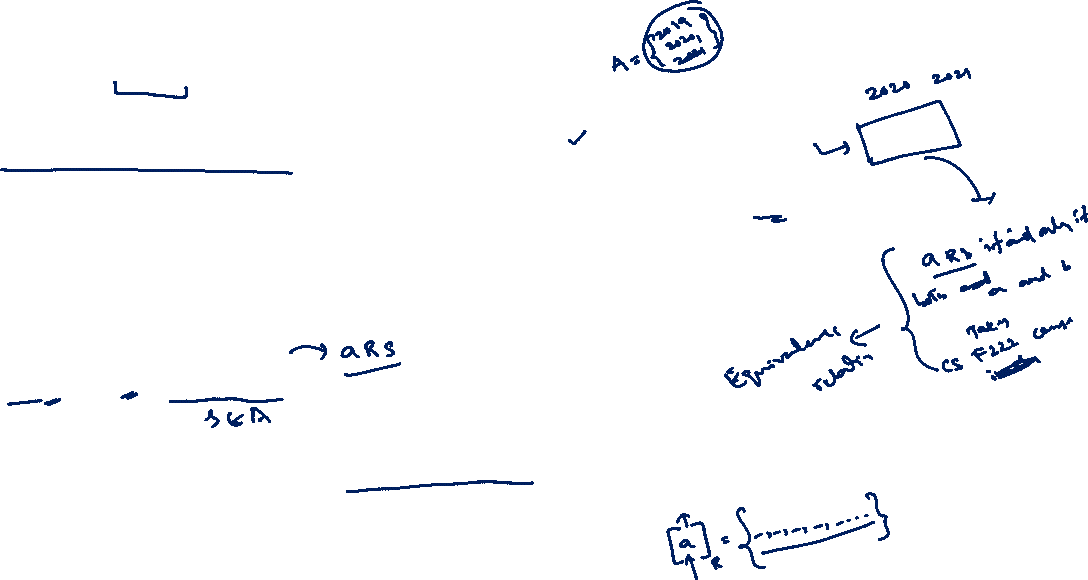 A = { 2019, 2020, 2021 }
2020 2021
aRb if and only if
both a and b
Taken
CS F222
Equivalence
relation
aRb
b ∈ A
[a]R = { -,-,-,-, .... }